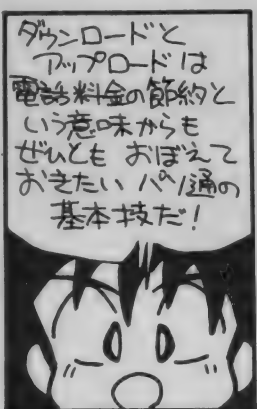 ダウンロードと
アップロードは
電話料金の節約と
いう意味からも
ぜひとも おぼえて
おきたい パソ通の
基本技だ!